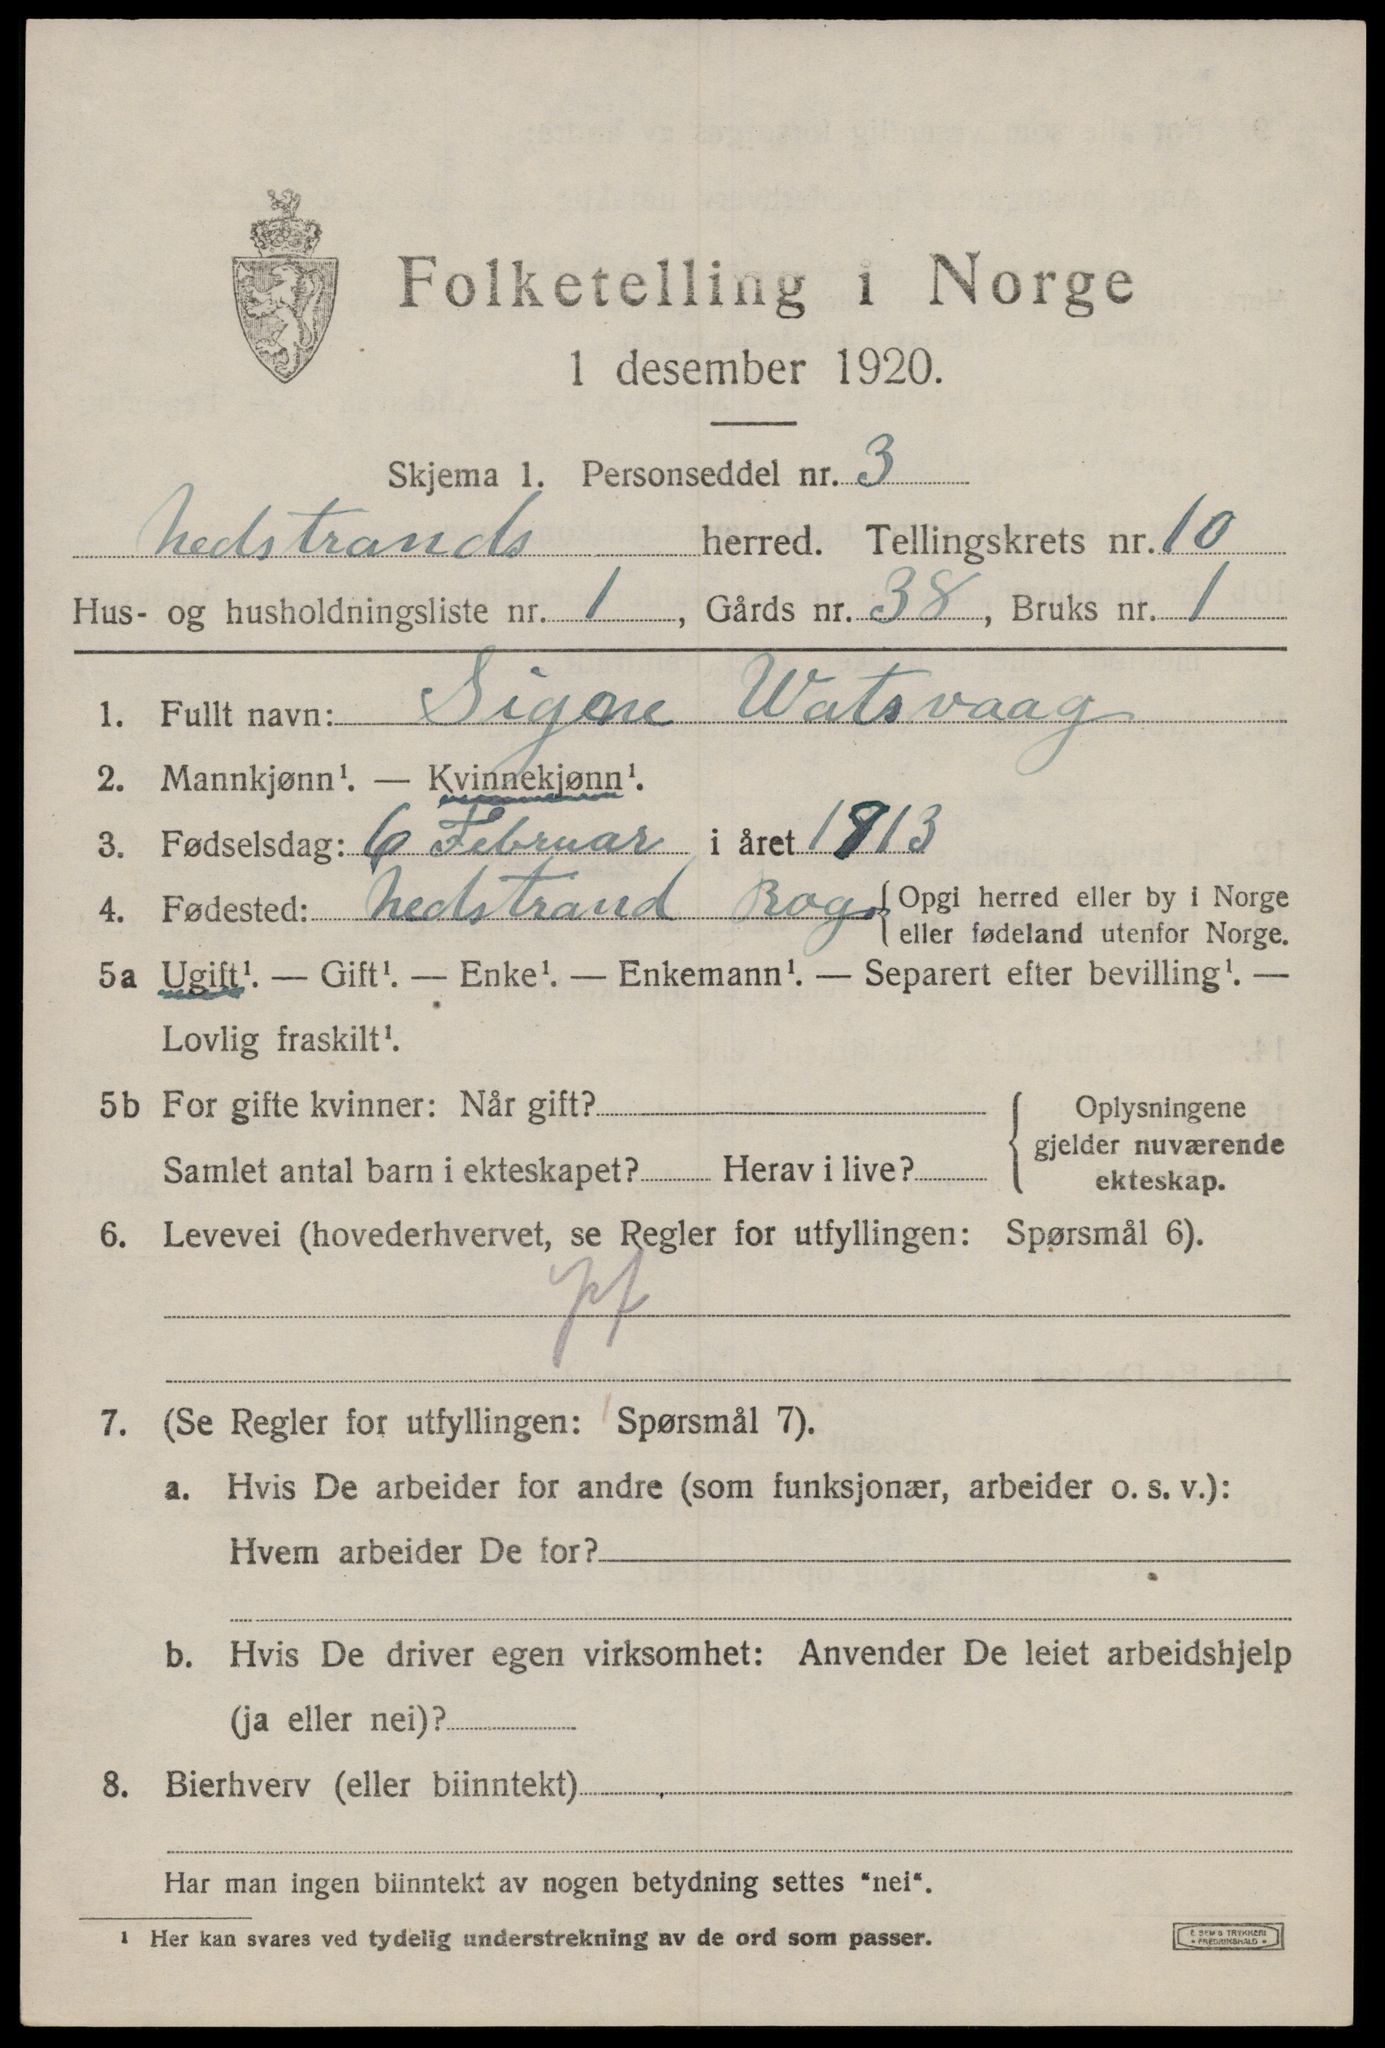 Folketelling i Norge
1 desember 1920.
Skjema 1. Personseddel nr. 3
Nedstrands herred. Tellingskrets nr. 10
Hus- og husholdningsliste nr. 1, Gårds nr. 38, Bruks nr. 1
1. Fullt navn: Signe Watsvaag
2. Mannkjønn¹. — Kvinnekjønn¹.
3. Fødselsdag: 6 Februar i året 1913
4. Fødested: Nedstrand Rog. { Opgi herred eller by i Norge
eller fødeland utenfor Norge.
5a Ugift¹. — Gift¹. — Enke¹. — Enkemann¹. — Separert efter bevilling¹. —
Lovlig fraskilt¹.
5b For gifte kvinner: Når gift?
Samlet antal barn i ekteskapet? Herav i live?
Oplysningene
gjelder nuværende
ekteskap.
6. Levevei (hovederhvervet, se Regler for utfyllingen: Spørsmål 6).
7. (Se Regler for utfyllingen: Spørsmål 7).
a. Hvis De arbeider for andre (som funksjonær, arbeider o. s. v.):
Hvem arbeider De for?
b. Hvis De driver egen virksomhet: Anvender De leiet arbeidshjelp
(ja eller nei)?
8. Bierhverv (eller biinntekt)
Har man ingen biinntekt av nogen betydning settes "nei".
¹ Her kan svares ved tydelig understrekning av de ord som passer.
E. SEM'S TRYKKERI
• FREDRIKSHALD •